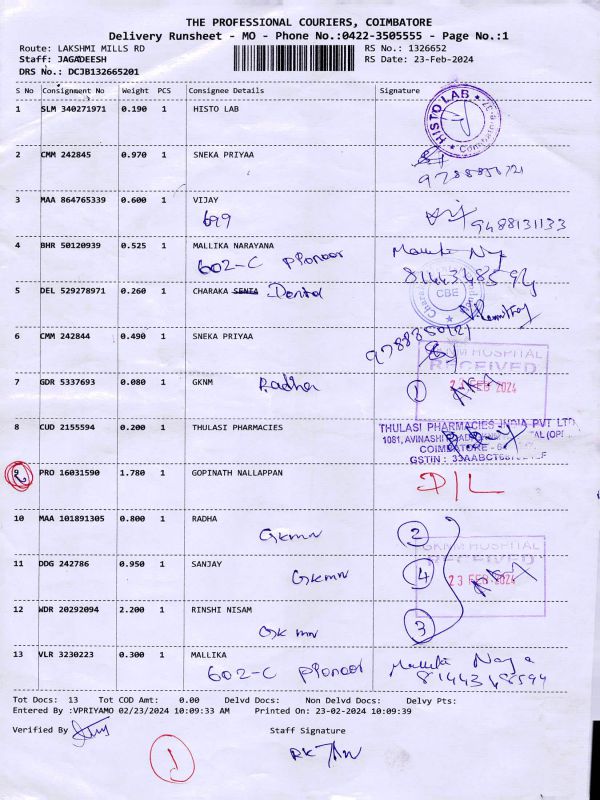 THE PROFESSIONAL COURIERS, COIMBATORE
Delivery Runsheet - MO - Phone No.:0422-3505555 - Page No.:1
Route: LAKSHMI MILLS RD RS No.: 1326652
Staff: JAGADEESH RS Date: 23-Feb-2024
DRS No.: DCJB132665201
S No Consignment No Weight PCS Consignee Details Signature
1 SLM 340271971 0.190 1 HISTO LAB
HISTO LAB
2 CMM 242845 0.970 1 SNEKA PRIYAA
3 MAA 864765339 0.600 1 VIJAY
699 9488131133
4 BHR 50120939 0.525 1 MALLIKA NARAYANA
602-C
5 DEL 529278971 0.260 1 CHARAKA SENTA Dental
CBE
6 CMM 242844 0.490 1 SNEKA PRIYAA
HOSPITAL
RECEIVED
7 GDR 5337693 0.080 1 GKNM Radha 1 FEB 2024
8 CUD 2155594 0.200 1 THULASI PHARMACIES
THULASI PHARMACIES INDIA PVT LTD
1081, AVINASHI
COIMBATORE
GSTIN :
9 PRO 16031590 1.780 1 GOPINATH NALLAPPAN D/L
10 MAA 101891305 0.800 1 RADHA
Gkmn 2
HOSPITAL
RECEIVED
11 DDG 242786 0.950 1 SANJAY
Gkmn 4 23 FEB 2024
12 WDR 20292094 2.200 1 RINSHI NISAM
Gkmn 3
13 VLR 3230223 0.300 1 MALLIKA
602-C 8144348594
Tot Docs: 13 Tot COD Amt: 0.00 Delvd Docs: Non Delvd Docs: Delvy Pts:
Entered By :VPRIYAMO 02/23/2024 10:09:33 AM Printed On: 23-02-2024 10:09:39
Verified By Staff Signature
1